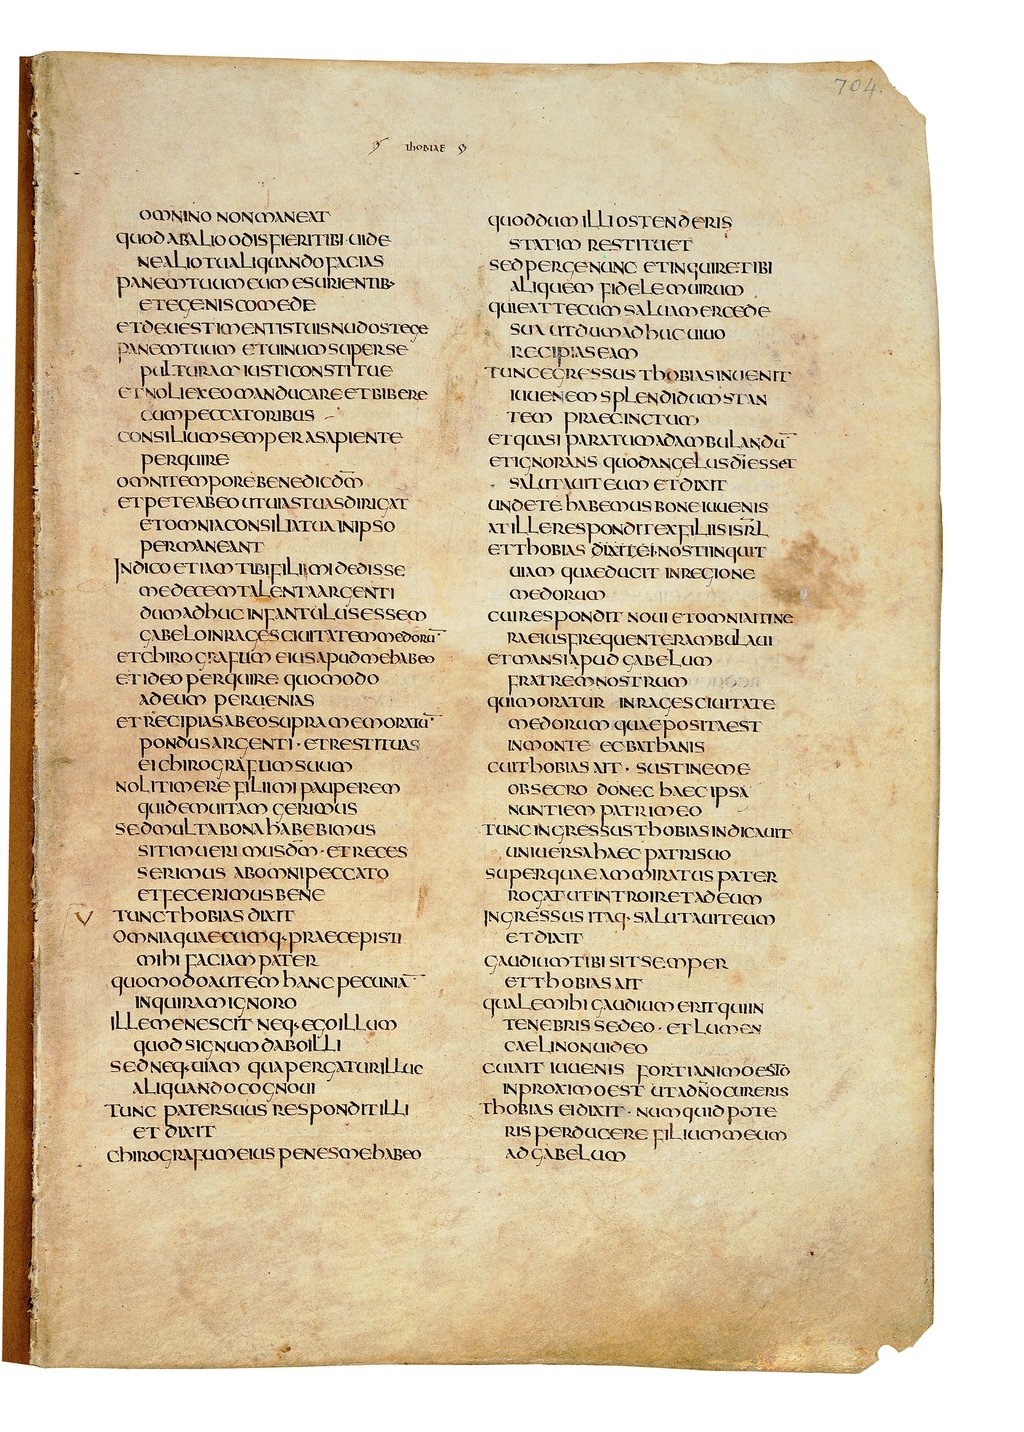 704
thobiae
omnino non maneat
quod ab alio odis fieri tibi uide
ne alio tu aliquando facias
panem tuum cum esurientib·
et egenis comede
et de uestimentis tuis nudos tege
panem tuum et uinum super se
pulturam iusti constitue
et noli ex eo manducare et bibere
cum peccatoribus
consilium semper a sapiente
perquire
omni tempore benedic dm̄
et pete ab eo ut uias tuas dirigat
et omnia consilia tua in ipso
permaneant
Indico etiam tibi fili mi dedisse
me decem talenta argenti
dum adhuc infantulus essem
gabelo in rages ciuitatem medorū
et chirografum eius apud me habeo
et ideo perquire quomodo
ad eum peruenias
et recipias ab eo supra memoratū
pondus argenti · et restituas
ei chirografum suum
noli timere fili mi pauperem
quidem uitam gerimus
sed multa bona habebimus
si timuerimus dm̄ · et reces
serimus ab omni peccato
et fecerimus bene
V tunc thobias dixit
omnia quaecumq· praecepisti
mihi faciam pater
quomodo autem hanc pecuniā
inquiram ignoro
ille me nescit neq· ego illum
quod signum dabo illi
sed neq· uiam qua pergatur illuc
aliquando cognoui
tunc pater suus respondit illi
et dixit
chirografum eius penes me habeo
quod dum illi ostenderis
statim restituet
sed perge nunc et inquire tibi
aliquem fidelem uirum
qui eat tecum salua mercede
sua ut dum adhuc uiuo
recipias eam
tunc egressus thobias inuenit
iuuenem splendidum stan
tem praecinctum
et quasi paratum ad ambulandū
et ignorans quod angelus dī esset
salutauit eum et dixit
unde te habemus bone iuuenis
at ille respondit ex filiis isrl̄
et thobias dixit ei · nosti inquit
uiam quae ducit in regione
medorum
cui respondit noui et omnia itine
ra eius frequenter ambulaui
et mansi apud gabelum
fratrem nostrum
qui moratur in rages ciuitate
medorum quae posita est
in monte ecbathanis
cui thobias ait · sustine me
obsecro donec haec ipsa
nuntiem patri meo
tunc ingressus thobias indicauit
uniuersa haec patri suo
super quae ammiratus pater
rogat ut introiret ad eum
Ingressus itaq· salutauit eum
et dixit
gaudium tibi sit semper
et thobias ait
quale mihi gaudium erit qui in
tenebris sedeo · et lumen
caeli non uideo
cui ait iuuenis forti animo esto
in proximo est ut a dn̄o cureris
thobias ei dixit · numquid pote
ris perducere filium meum
ad gabelum